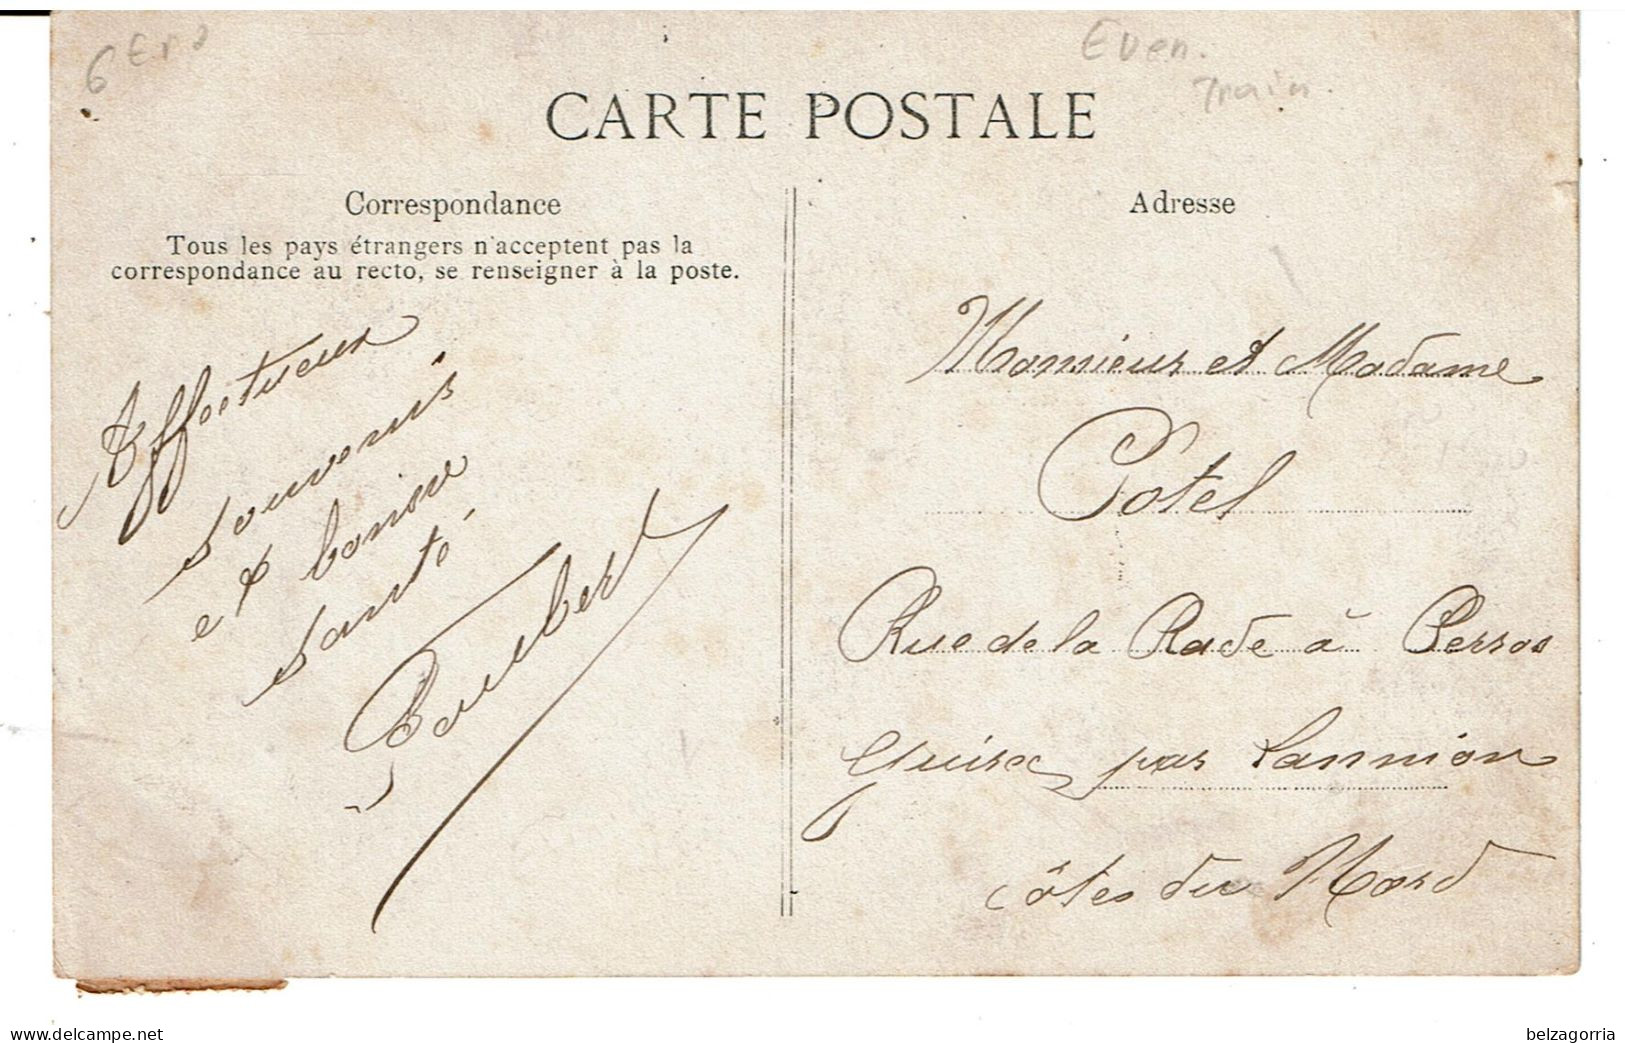 6 Er
Even.
Train.
CARTE POSTALE
Correspondance
Tous les pays étrangers n'acceptent pas la
correspondance au recto, se renseigner à la poste.
Affectueux
souvenirs
et bonne
santé.
Adresse
Monsieur et Madame
Potel
Rue de la Rade à Perros
Guirec par Lannion
Côtes du Nord
www.delcampe.net
belzagorria